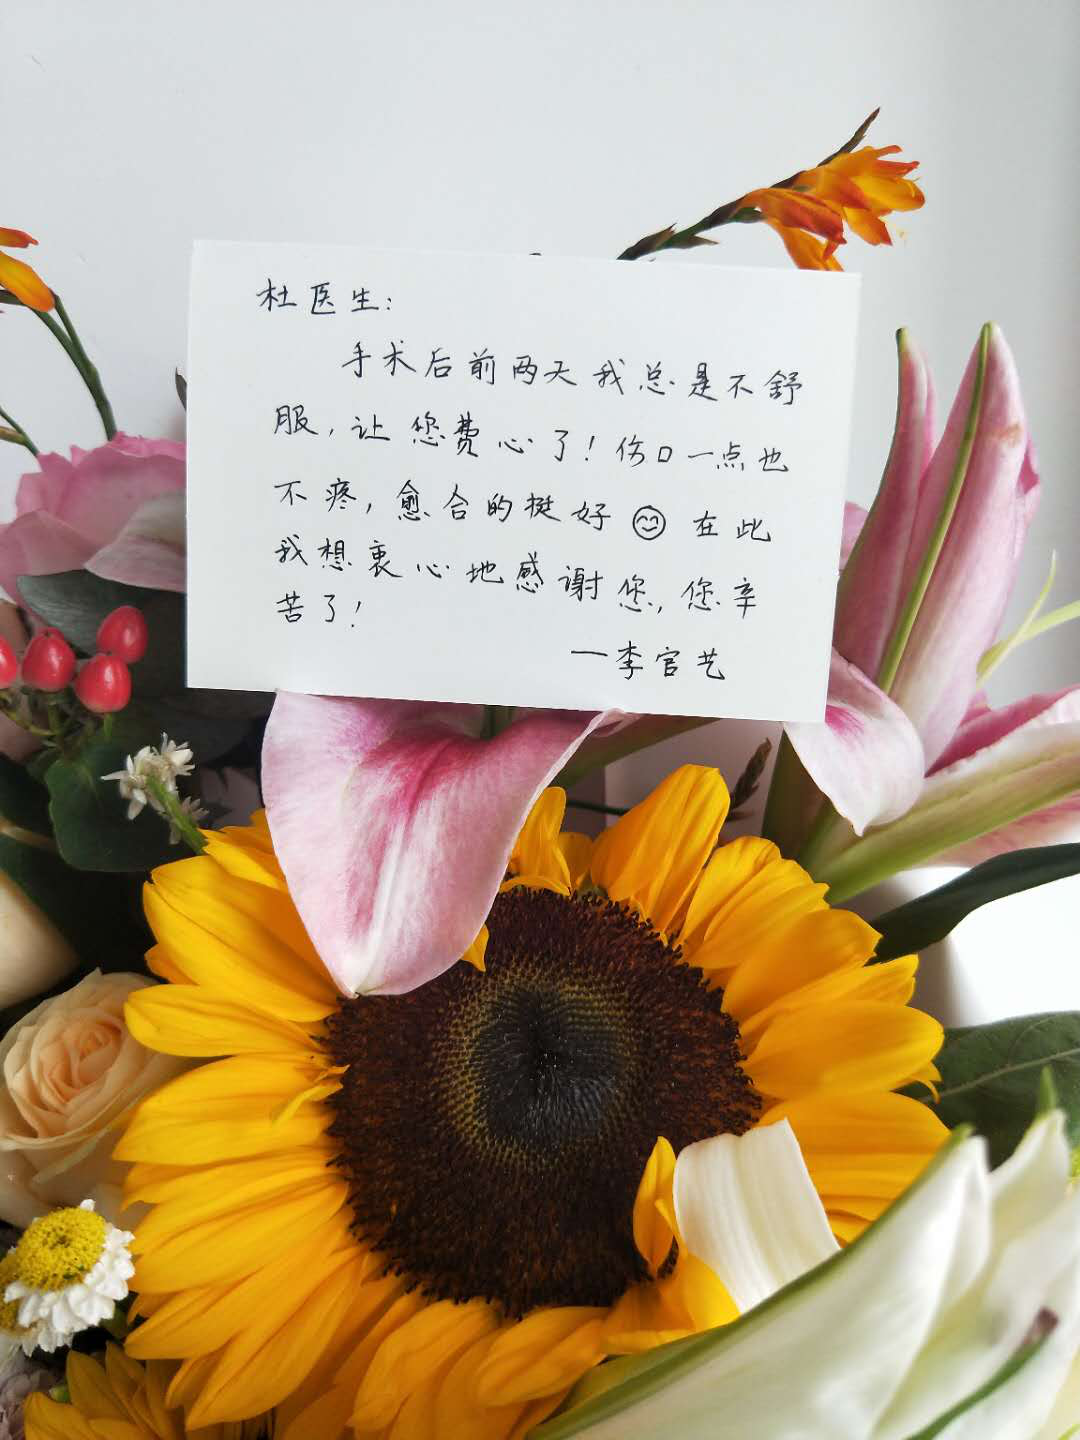 杜医生:
手术后前两天我总是不舒
服,让您费心了!伤口一点也
不疼,愈合的挺好 😊 在此
我想衷心地感谢您,您辛
苦了!
一李官艺